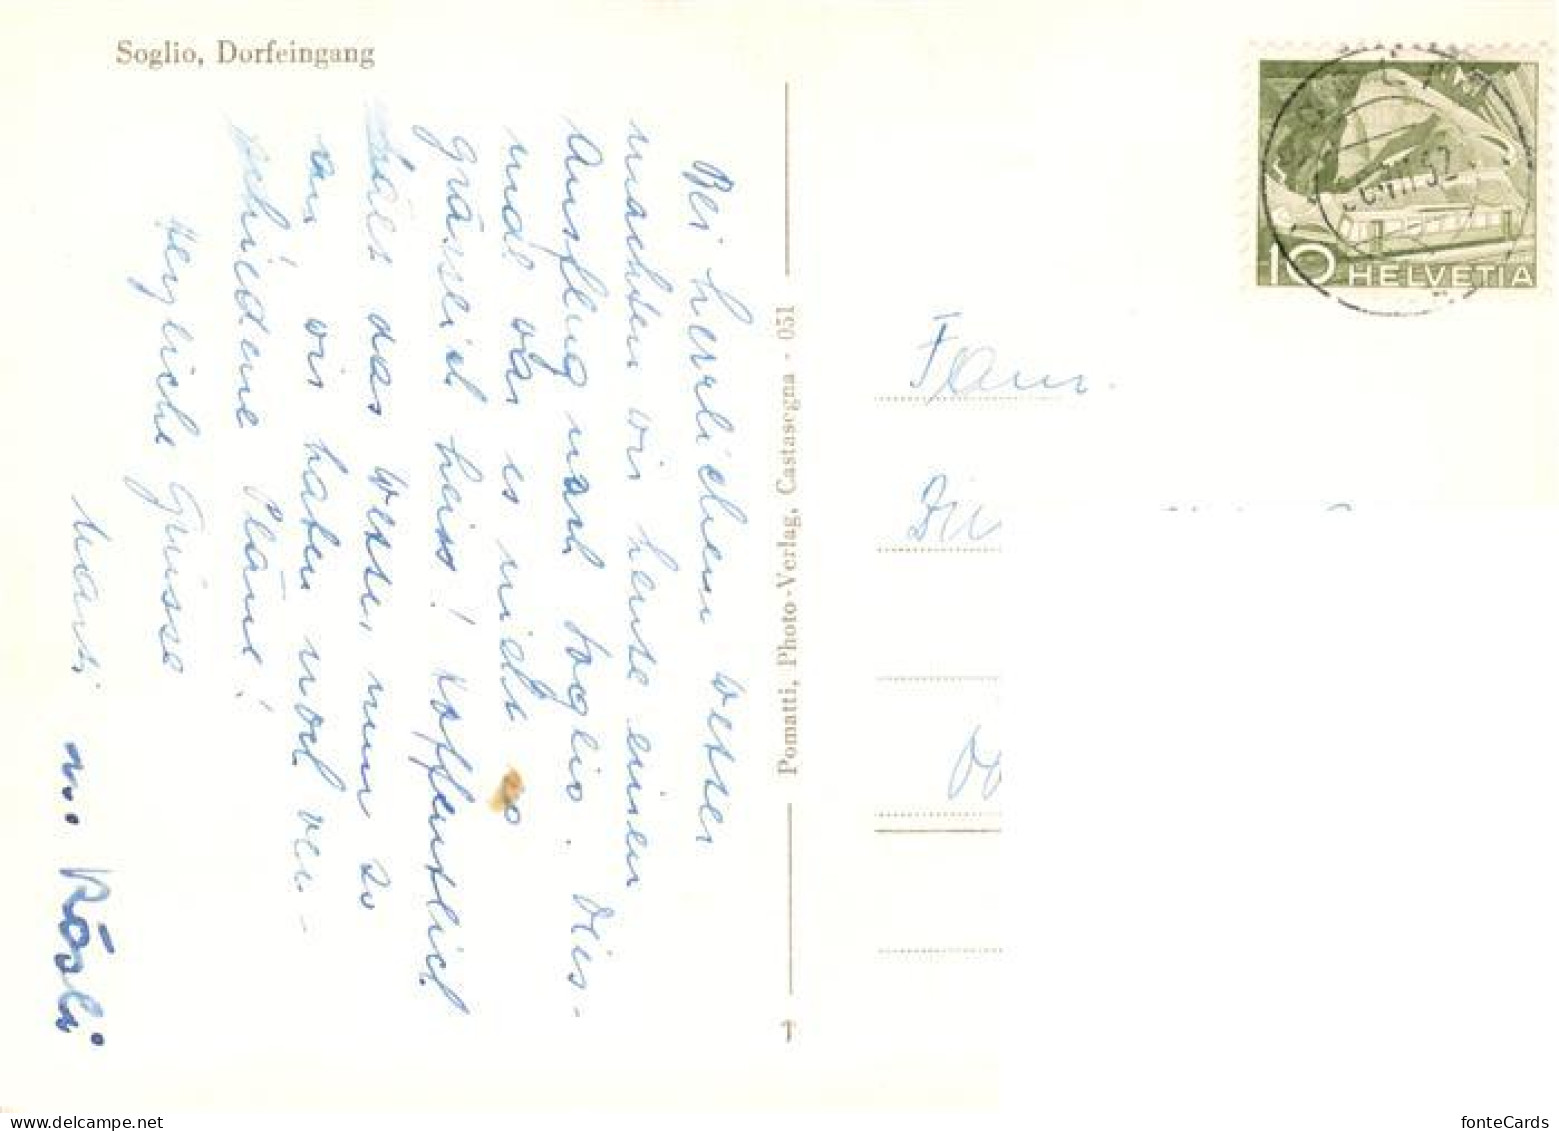 Soglio, Dorfeingang
Bei herrlichem Wetter
machten wir heute einen
Ausflug nach Soglio. Dies-
mal war es nicht so
grässlich heiss! Hoffentlich
hält das Wetter nun so
an, wir haben noch ver-
schiedene Pläne!
Herzliche Grüsse
Marti
u. Rösli
Pomatti, Photo-Verlag, Castasegna - 051
10 HELVETIA
52
Fam.
fonteCards